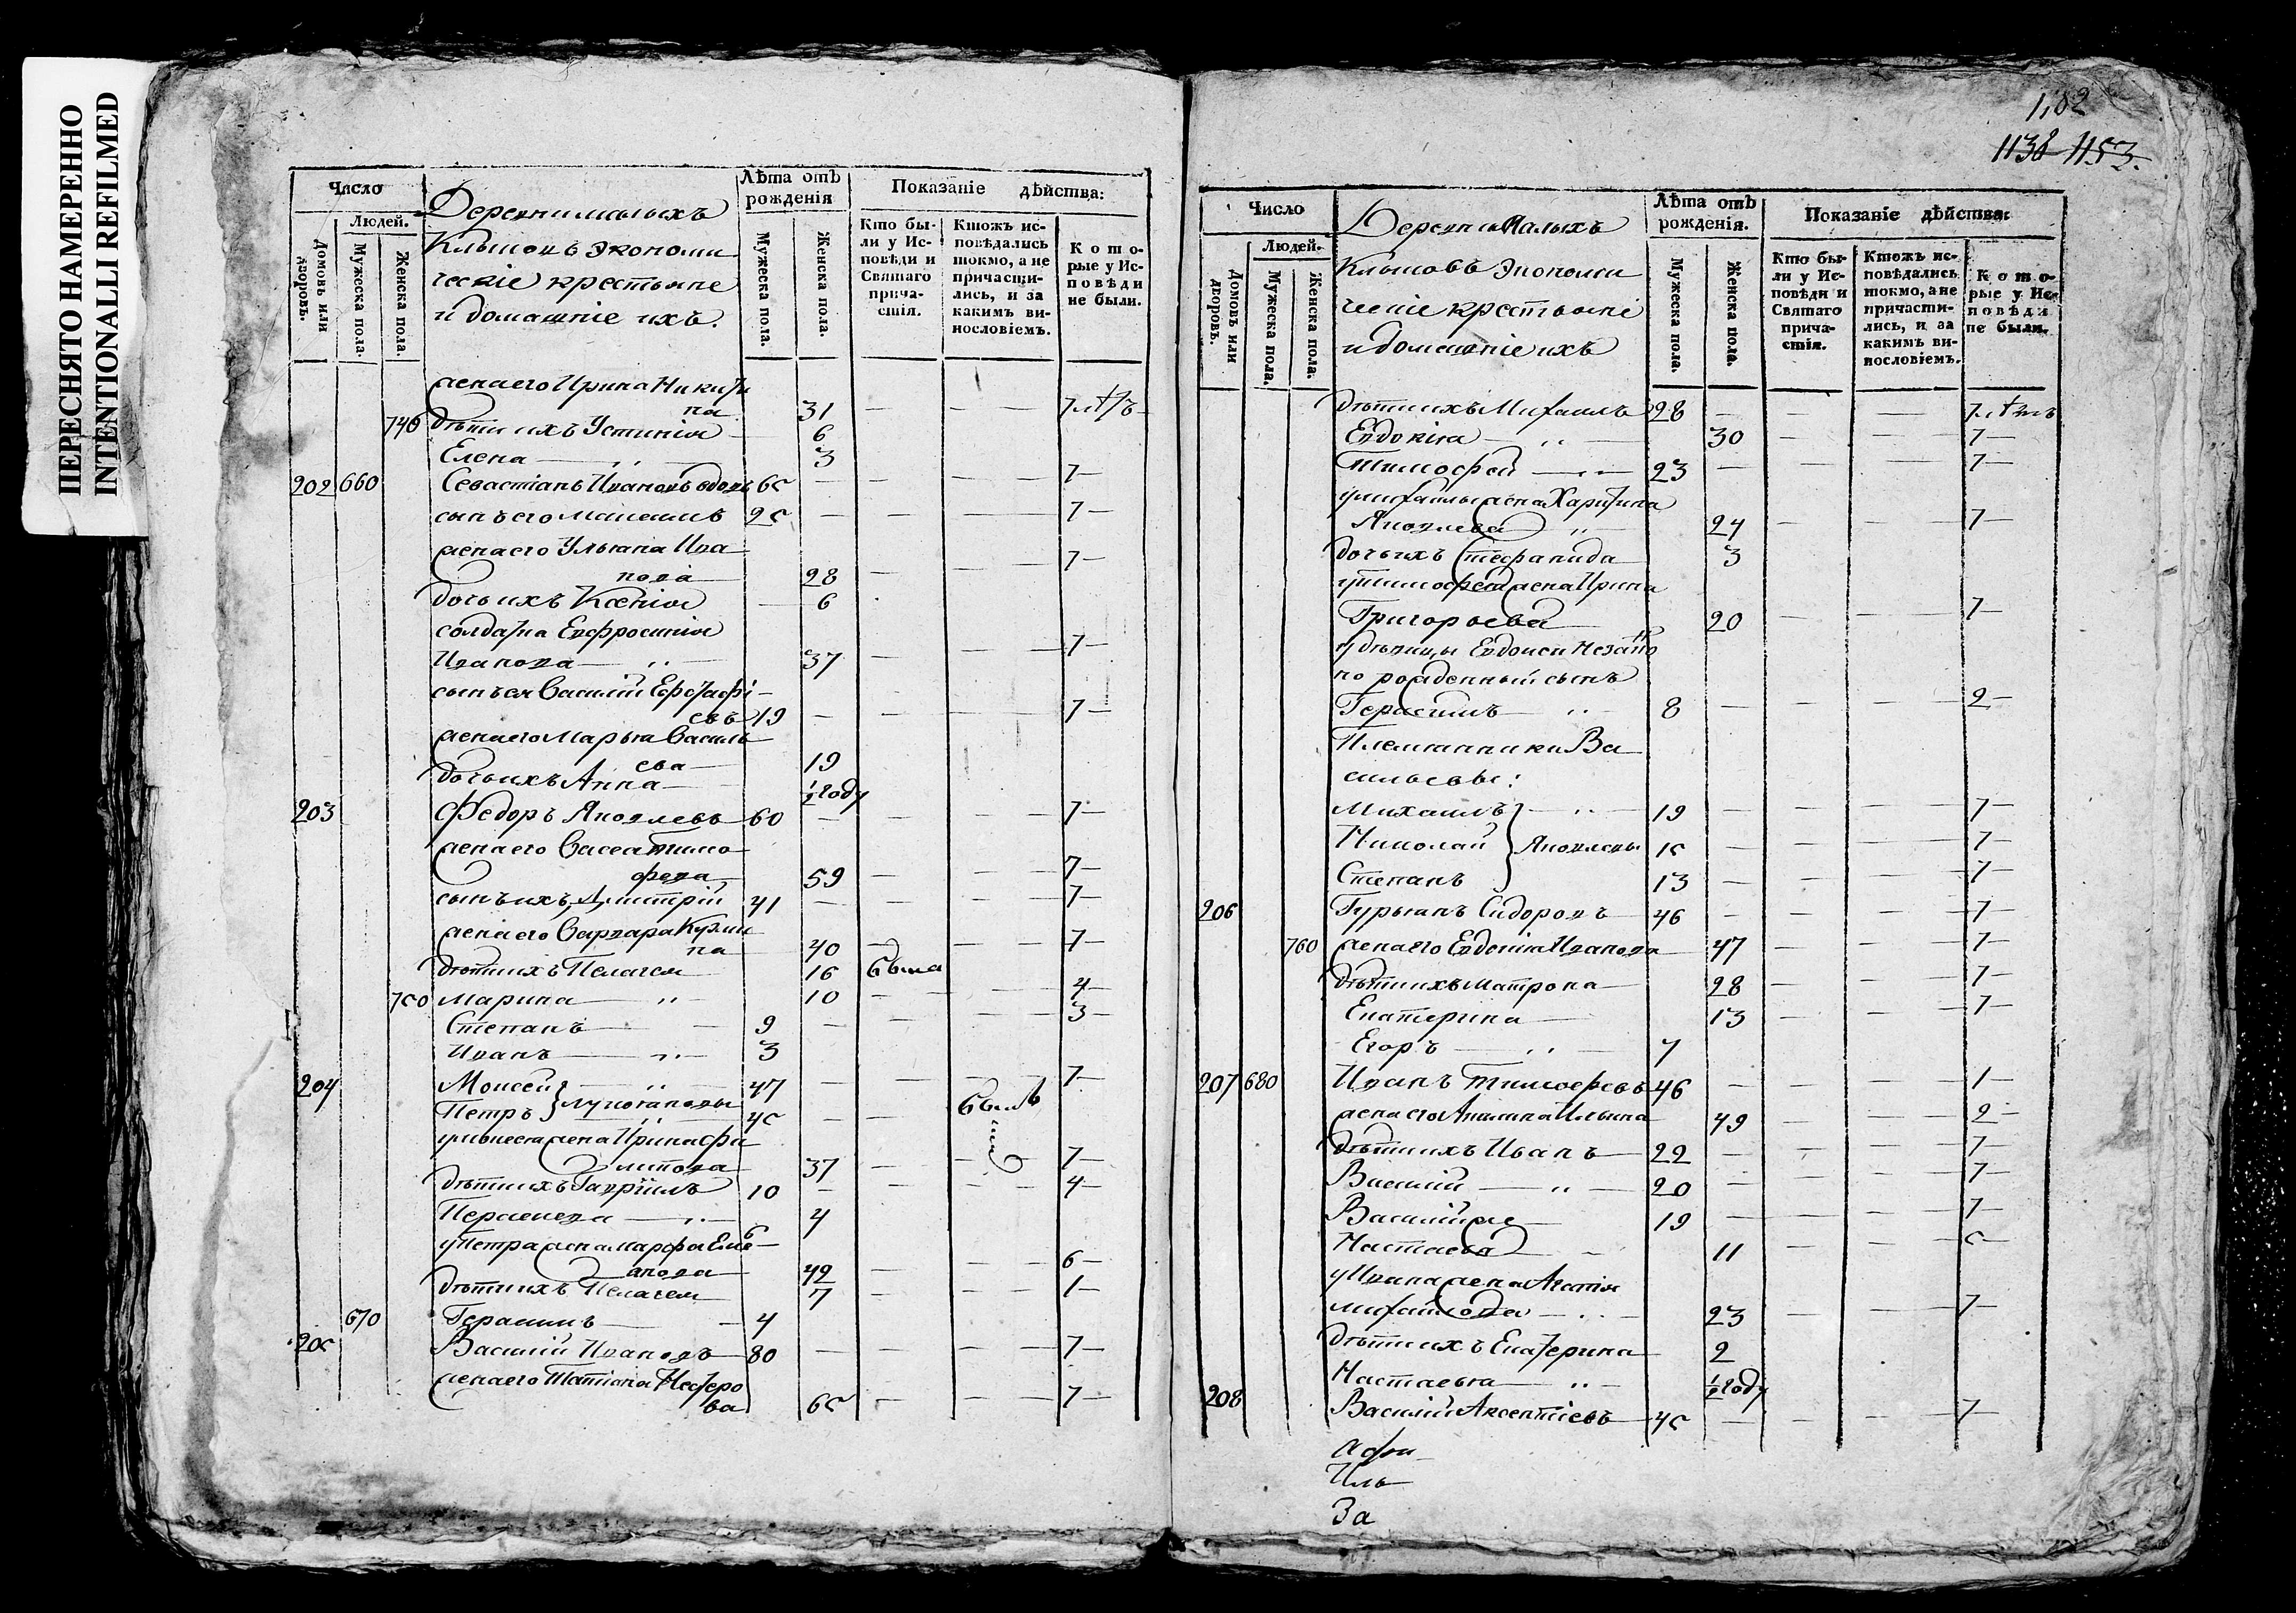 ПЕРЕСНЯТО НАМЕРЕННО
INTENTIONALLI REFILMED
Число
Людей.
Домовъ или дворовъ.
Мужеска пола.
Женска пола.
Деревни малыхъ
Клытовъ экономи
ческіе крестьяне
и домашніе ихъ.
Лѣта отъ рожденія
Мужеска пола.
Женска пола.
Показаніе дѣйства:
Кто были у Исповѣди и Святаго причастія.
Ктожъ исповѣдались токмо, а не причастились, и за какимъ винословіемъ.
Которые у Исповѣди не были.
жена его Ирина Никити
на 31 — — — 7 лѣтъ
746 дѣти ихъ Устинія — 6
Елена — 3
202 660 Севастіанъ Ивановъ вдовъ 65 — — — 7 —
сынъ его 25 — — — 7 —
жена его Ульяна Ива
нова 28 — — — 7 —
дочь ихъ Ксенія — 6
солдатка Евфросинія
Иванова — 37 — — — 7 —
сынъ ея Василій
евъ 19 — — — 7 —
жена его Марья Василь
ева — 19
дочь ихъ Анна — ½ году
203 Федоръ Яковлевъ 60 — — — 7 —
жена его Васса Тимо
феева 59 — — — 7 —
сынъ ихъ Дмитрій 41 — — — 7 —
жена его Варвара Кузми
на 40 — — — 7 —
дѣти ихъ Пелагея 16 была
750 Марина — 10 — — — 4 —
Степанъ — 9 — — — 3 —
Иванъ — 3
204 Моисей — 47 — — — 7 —
Петръ } Лукояновы 45 — — былъ
у Моисея жена Ирина Фи
липова 37 — — — 7 —
дѣти ихъ Гавріилъ 10 — — — 4 —
Парасковья — 4
у Петра жена Марфа
анова 42 — — — 6 —
дѣти ихъ Пелагея 7 — — — 1 —
670 Герасимъ — 4
205 Василій Ивановъ 80 — — — 7 —
жена его Татіана Несторо
ва 65 — — — 7 —
1,02
1138 1153.
Число
Людей.
Домовъ или дворовъ.
Мужеска пола.
Женска пола.
Деревни Малыхъ
Клытовъ экономи
ческіе крестьяне
и домашніе ихъ
Лѣта отъ рожденія.
Мужеска пола.
Женска пола.
Показаніе дѣйства:
Кто были у Исповѣди и Святаго причастія.
Ктожъ исповѣдались токмо, а не причастились, и за какимъ винословіемъ.
Которые у Исповѣди не были.
дѣти ихъ Михаилъ 28 — — 7 лѣтъ
Евдокія — 30 — — 7 —
Тимофей — 23 — — — 7 —
у Михайлы жена Харитина
Яковлева 24 — — 7 —
дочь ихъ Стефанида 3
у Тимофея жена Ирина
Григорьева 20 — — 7 —
у дѣвицы Евдокіи незако
но рожденный сынъ
Герасимъ — 8 — — — 2 —
Племянники Ва
сильевы:
Михаилъ — 19 — — — 7 —
Николай } Яковлевы 15 — — — 7 —
Степанъ 13 — — — 7 —
206 Гурьянъ Сидоровъ 46 — — — 7 —
760 жена его Евдокія Иванова 47 — — 7 —
дѣти ихъ Матрона 28 — — 7 —
Екатерина 13 — — 7 —
Егоръ — 7
207 680 Иванъ Тимофеевъ 46 — — — 1 —
жена его Акилина Ильина 49 — — 2 —
дѣти ихъ Иванъ 22 — — — 7 —
Василій — 20 — — — 7 —
Василій же 19 — — — 7 —
Настасья — 11 — — 5 —
у Ивана жена Агафія
Михайлова — 23 — — 7 —
дѣти ихъ Екатерина 2
Настасья — ½ году
208 Василій Аксентіевъ 45 — — — 7 —
Иль
За